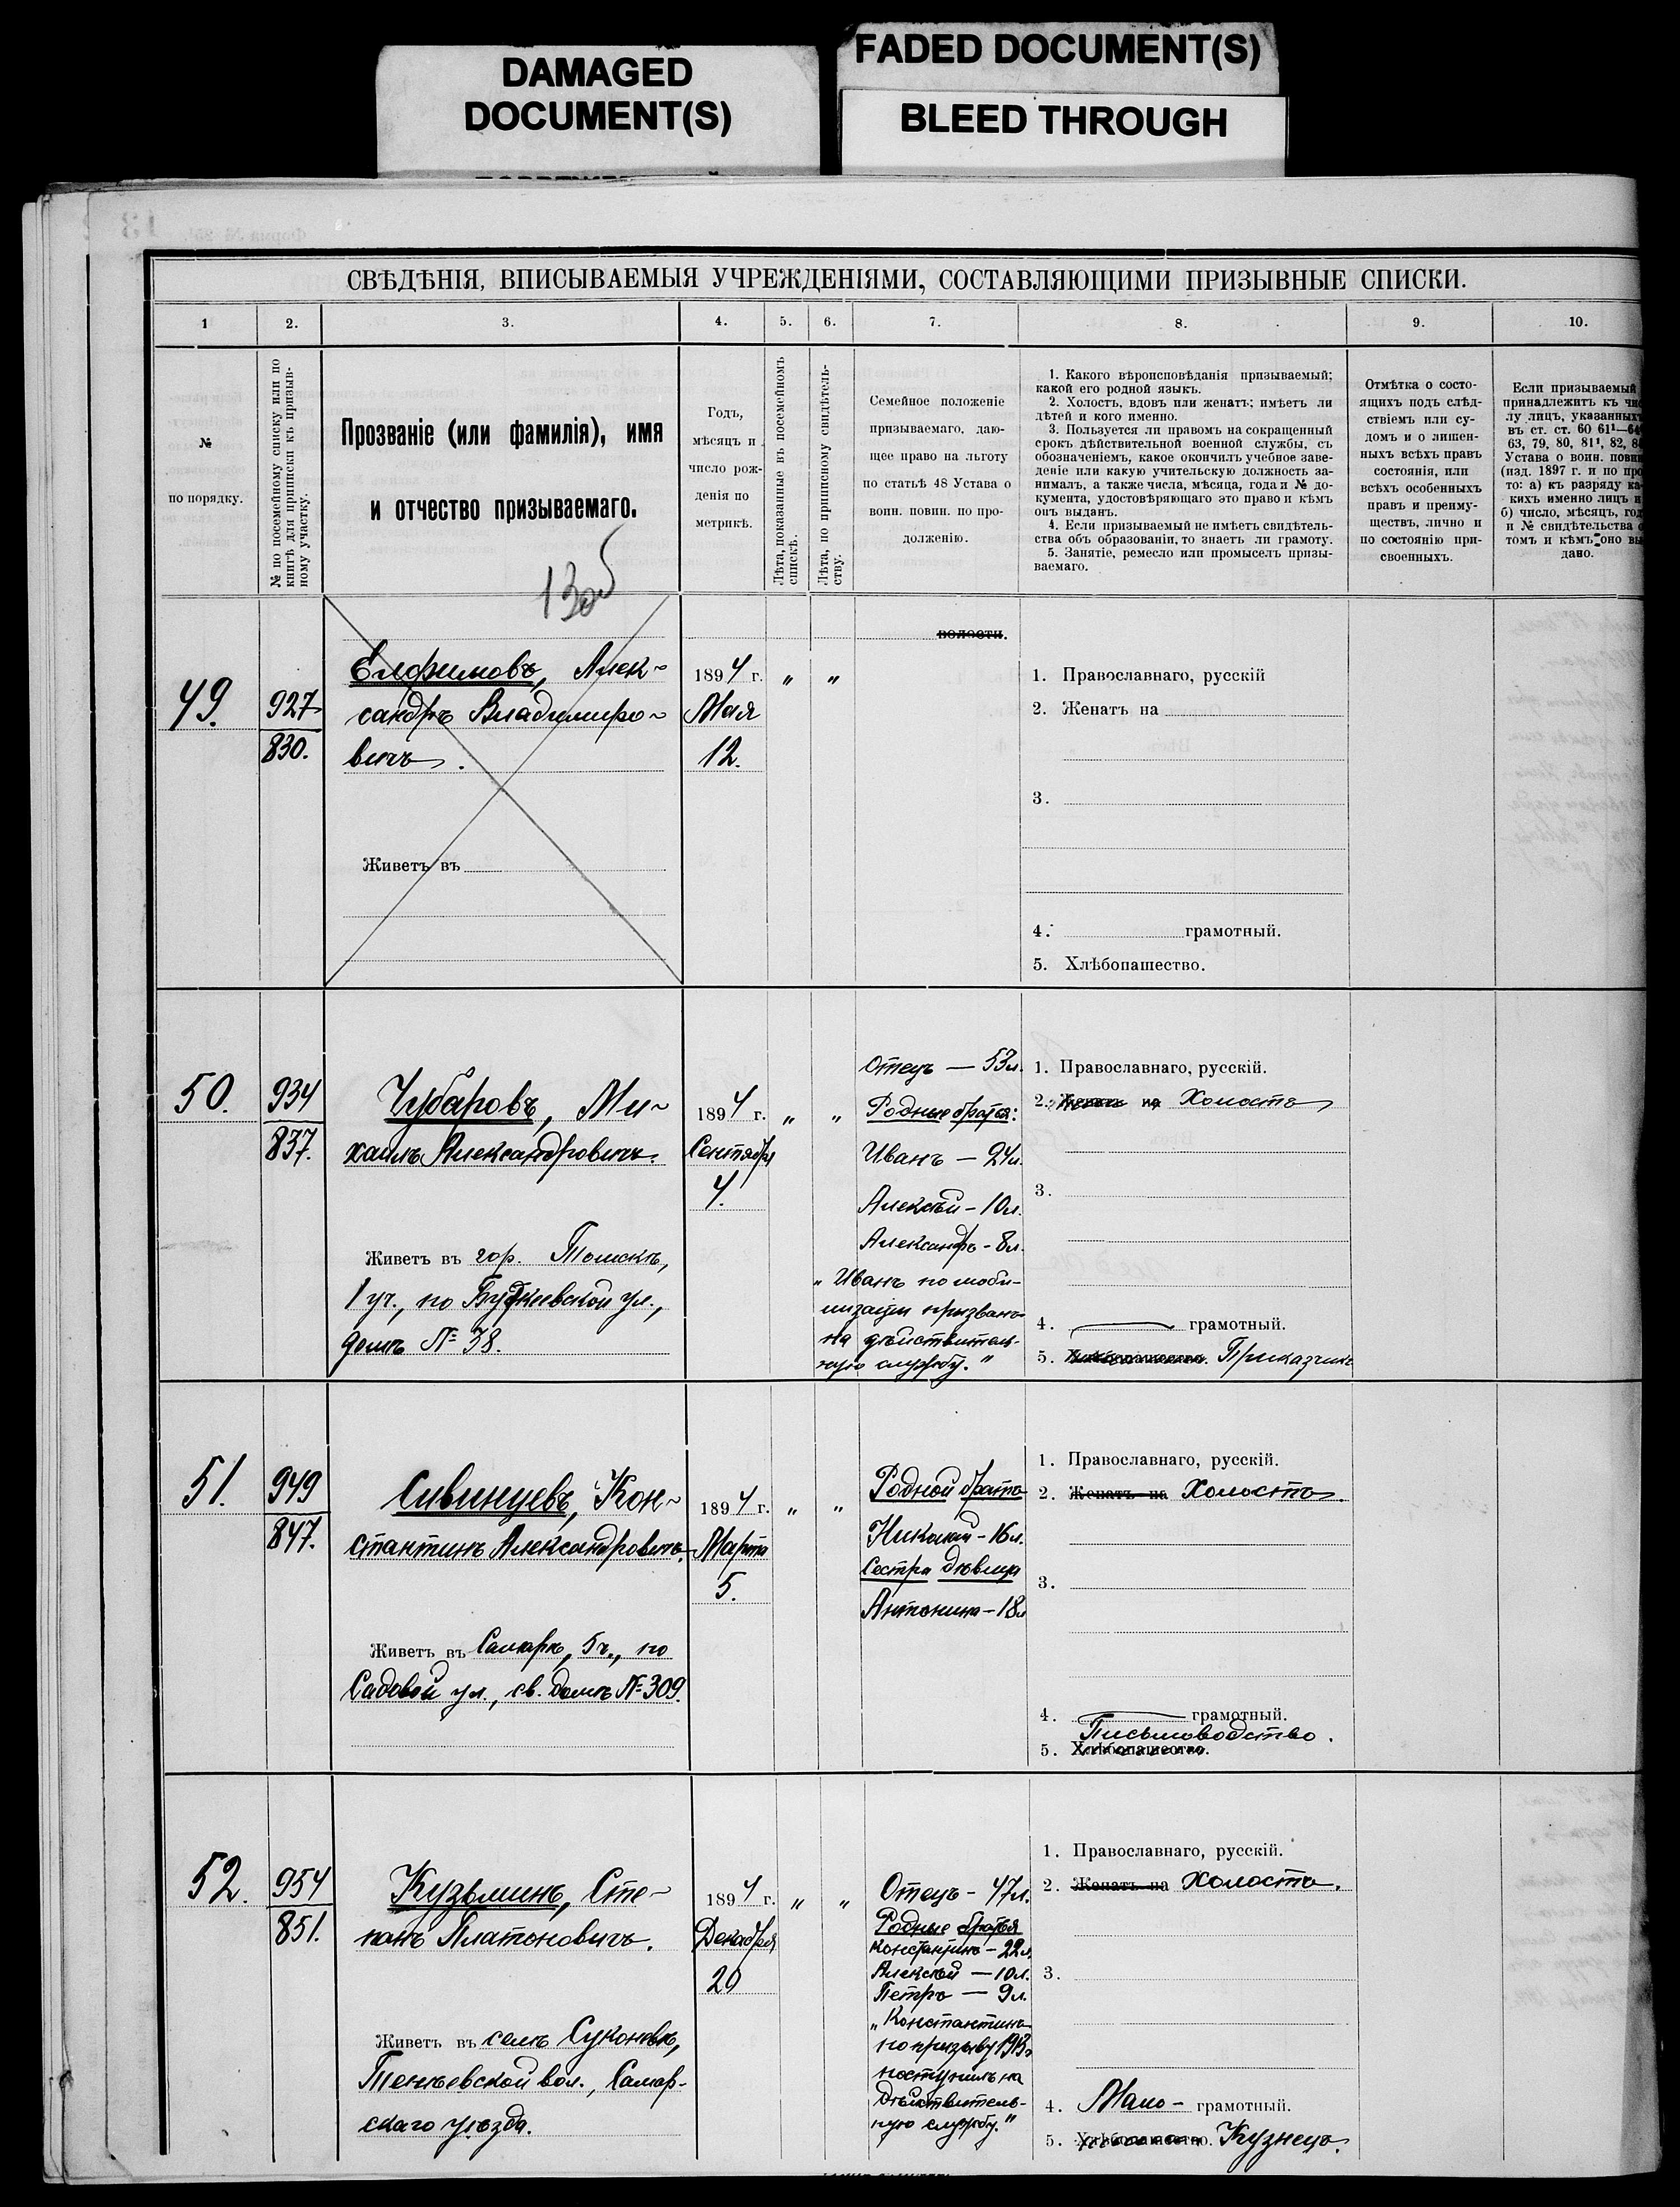 DAMAGED
DOCUMENT(S)
FADED DOCUMENT(S)
BLEED THROUGH
СВѢДѢНІЯ, ВПИСЫВАЕМЫЯ УЧРЕЖДЕНІЯМИ, СОСТАВЛЯЮЩИМИ ПРИЗЫВНЫЕ СПИСКИ.
1 2. 3. 4. 5. 6. 7. 8. 9. 10.
№
по порядку.
№ по посемейному списку или по
книгѣ для приписки къ призыв-
ному участку.
Прозваніе (или фамилія), имя
и отчество призываемаго.
Годъ,
мѣсяцъ и
число рож-
денія по
метрикѣ.
Лѣта, показанные въ посемейномъ
спискѣ.
Лѣта, по приписному свидѣтель-
ству.
Семейное положеніе
призываемаго, даю-
щее право на льготу
по статьѣ 48 Устава о
воин. повин. по про-
долженію.
1. Какого вѣроисповѣданія призываемый;
какой его родной языкъ.
2. Холостъ, вдовъ или женатъ; имѣетъ ли
дѣтей и кого именно.
3. Пользуется ли правомъ на сокращенный
срокъ дѣйствительной военной службы, съ
обозначеніемъ, какое окончилъ учебное заве-
деніе или какую учительскую должность за-
нималъ, а также числа, мѣсяца, года и № до-
кумента, удостовѣряющаго это право и кѣмъ
онъ выданъ.
4. Если призываемый не имѣетъ свидѣтель-
ства объ образованіи, то знаетъ ли грамоту.
5. Занятіе, ремесло или промыселъ призы-
ваемаго.
Отмѣтка о состо-
ящихъ подъ слѣд-
ствіемъ или су-
домъ и о лишен-
ныхъ всѣхъ правъ
состоянія, или
всѣхъ особенныхъ
правъ и преиму-
ществъ, лично и
по состоянію при-
своенныхъ.
Если призываемый
принадлежитъ къ чис
лу лицъ, указанныхъ
въ ст. ст. 60 61¹—64
63, 79, 80, 81¹, 82, 8
Устава о воин. повин
(изд. 1897 г. и по про
то: а) къ разряду ка-
кихъ именно лицъ и
б) число, мѣсяцъ, год
и № свидѣтельства о
томъ и кѣмъ оно вы
дано.
13об
49.
927
830.
Елфимовъ, Алек-
сандръ Владимиро-
вичъ.
Живетъ въ
1894 г.
Мая
12.
" "
волости.
1. Православнаго, русскій
2. Женатъ на
3.
4. грамотный.
5. Хлѣбопашество.
50.
934
837.
Чубаровъ, Ми-
хаилъ Александровичъ.
Живетъ въ гор. Томскѣ,
1 уч., по Буткеевской ул.,
домъ № 38.
1894 г.
Сентября
4.
" "
Отецъ — 53 л.
Родные братья:
Иванъ — 24 л.
Алексѣй – 10 л.
Александръ – 8 л.
"Иванъ по моби-
лизаціи призванъ
на дѣйствитель-
ную службу."
1. Православнаго, русскій.
2. Женатъ на Холостъ
3.
4. грамотный.
5. Хлѣбопашество. Приказчикъ
51.
949
847.
Сивинцевъ, Кон-
стантинъ Александровичъ.
Живетъ въ Самарѣ, 5 ч., по
Садовой ул., св. домъ № 309.
1894 г.
Марта
5.
" "
Родной братъ
Николай – 16 л.
Сестра дѣвица
Антонина – 18 л
1. Православнаго, русскій.
2. Женатъ на Холостъ.
3.
4. грамотный.
Письмоводство.
5. Хлѣбопашество.
52.
954
851.
Кузьминъ, Сте-
панъ Платоновичъ.
Живетъ въ селѣ Суконевкѣ,
Тенѣевской вол., Самар-
скаго уѣзда.
1894 г.
Декабря
20
" "
Отецъ – 47 л.
Родные братья
Константинъ – 22 л.
Алексѣй — 10 л.
Петръ — 9 л.
"Константинъ
по призыву 1913 г.
поступилъ на
дѣйствитель-
ную службу."
1. Православнаго, русскій.
2. Женатъ на Холостъ.
3.
4. Мало- грамотный.
5. Хлѣбопашество. Кузнецъ.